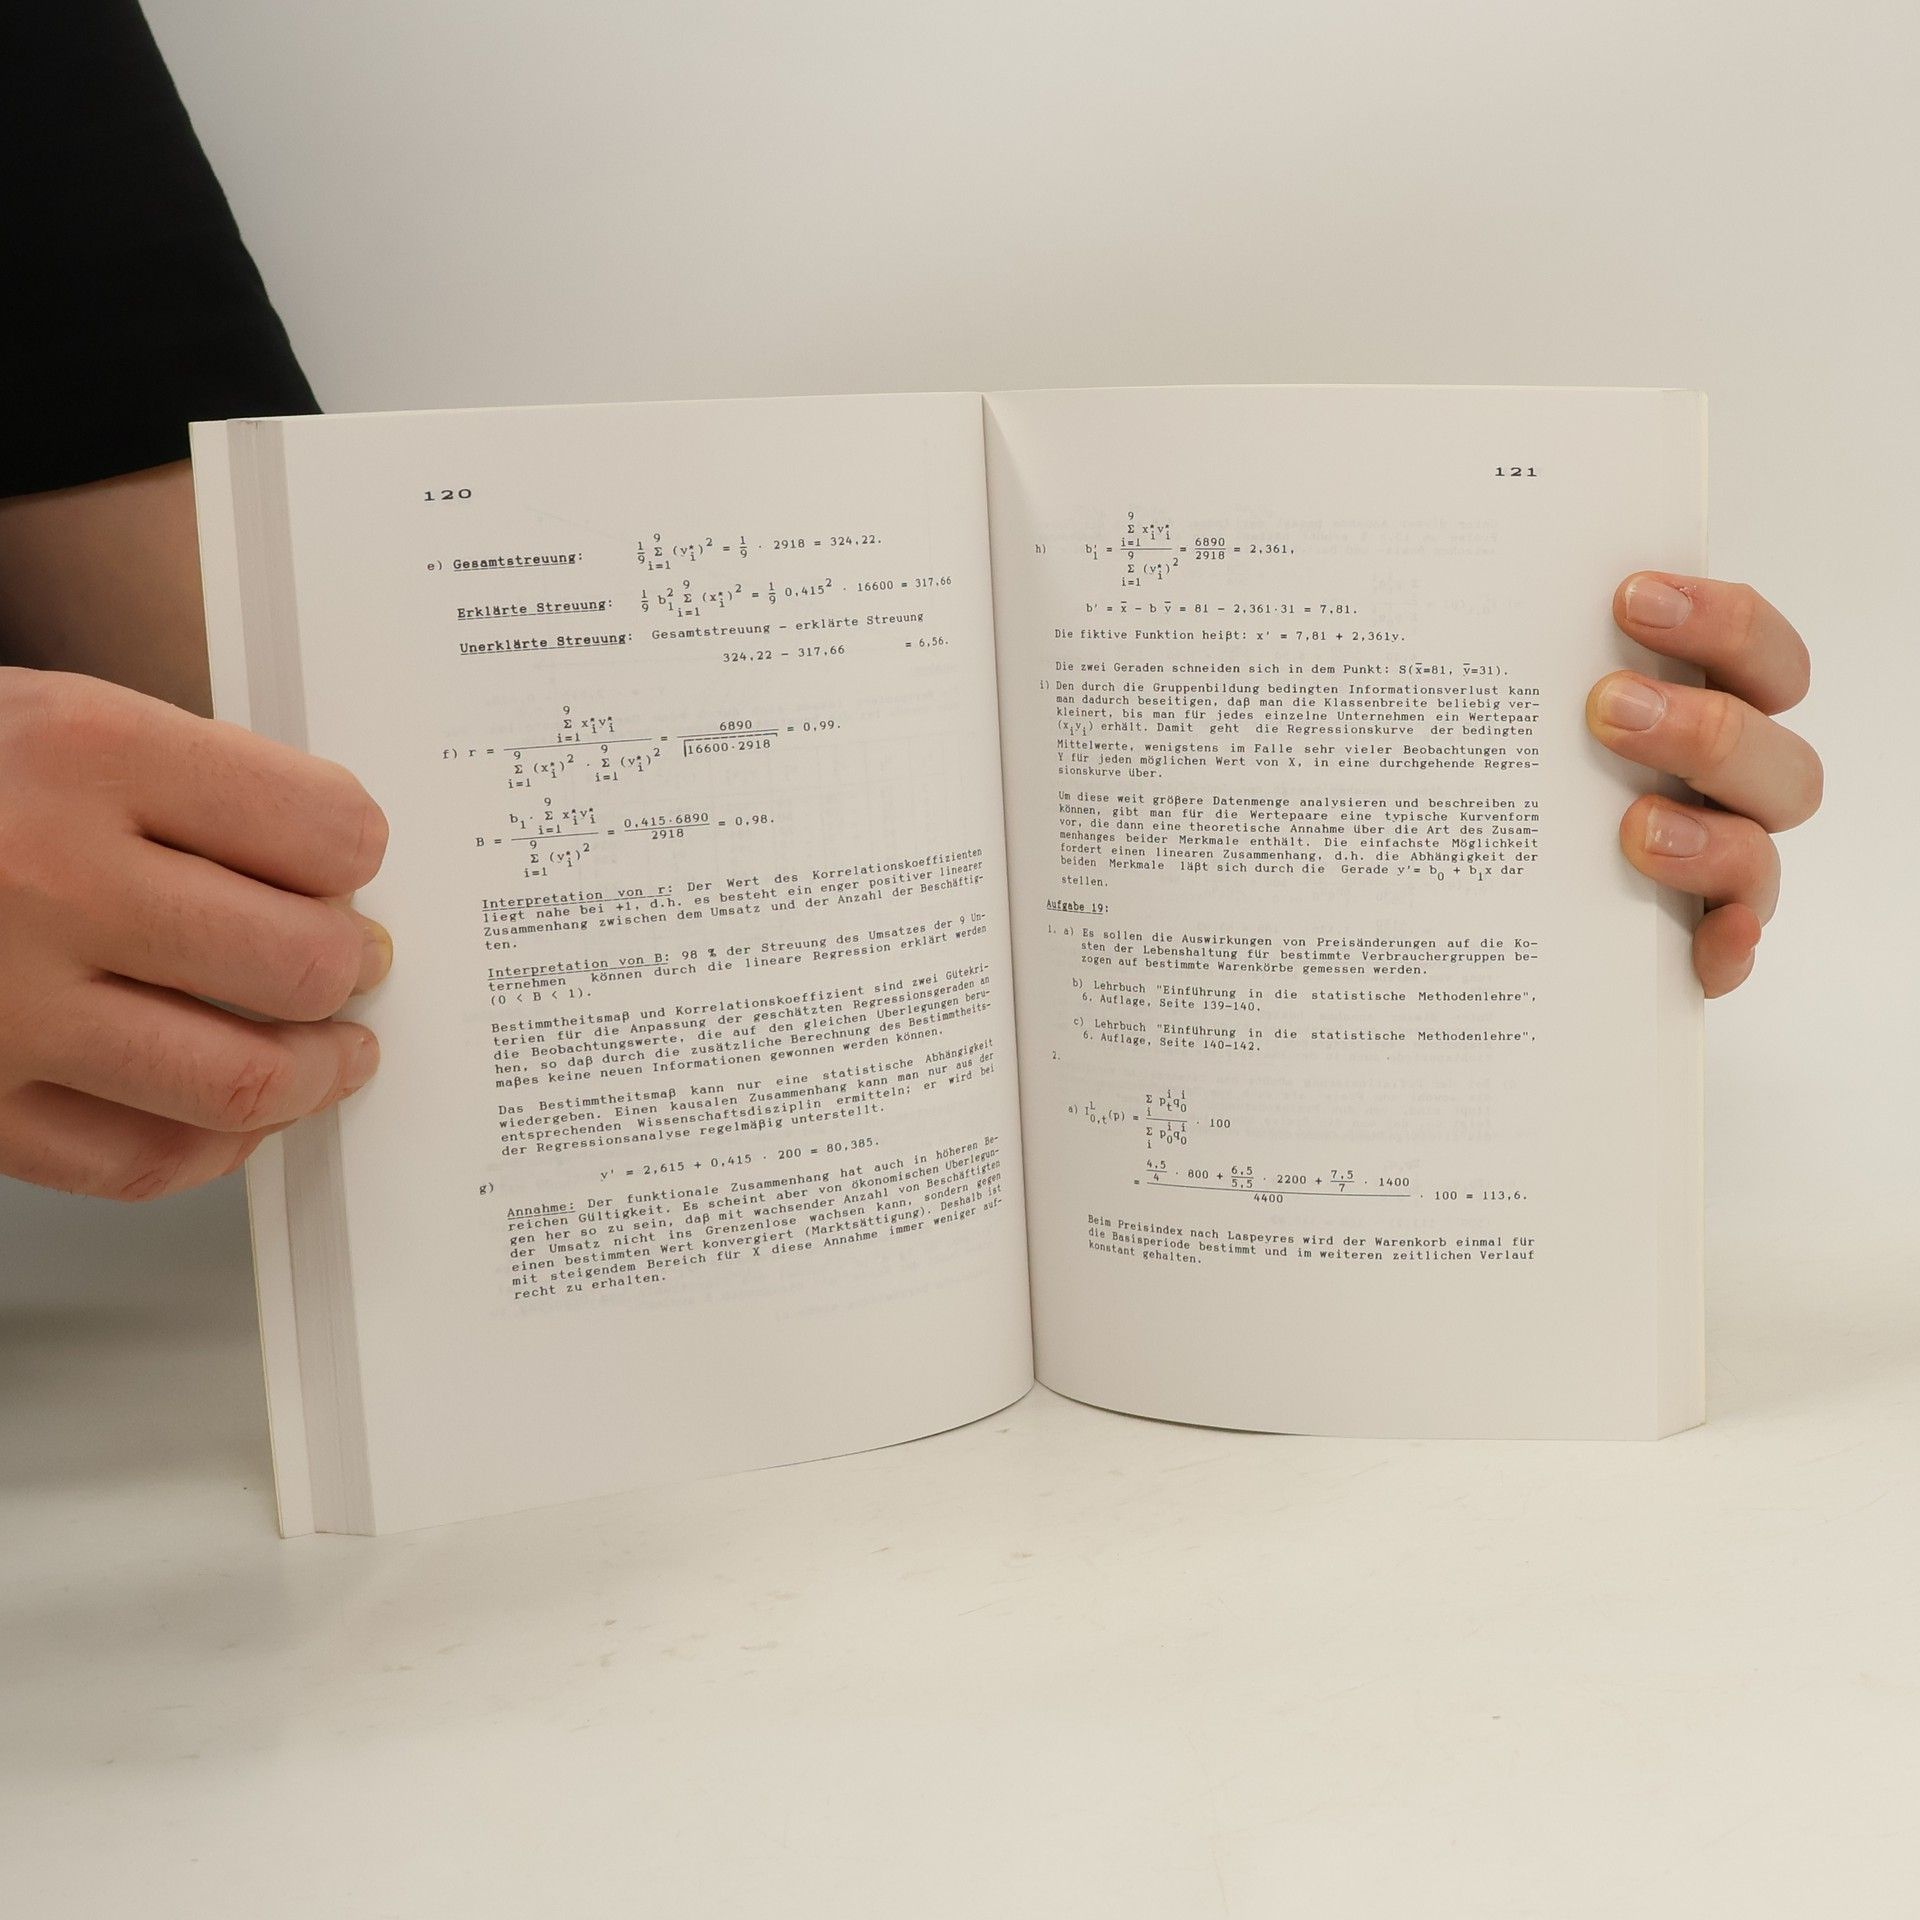 120
e) Gesamtstreuung: 1/9 Σ_{i=1}^{9} (y_i*)² = 1/9 · 2918 = 324,22.
Erklärte Streuung: 1/9 b_1² Σ_{i=1}^{9} (x_i*)² = 1/9 0,415² · 16600 = 317,66
Unerklärte Streuung: Gesamtstreuung - erklärte Streuung
324,22 - 317,66 = 6,56.
f) r = Σ_{i=1}^{9} x_i* y_i* / Σ_{i=1}^{9} (x_i*)² · Σ_{i=1}^{9} (y_i*)² = 6890 / √(16600·2918) = 0,99.
B = b_1 · Σ_{i=1}^{9} x_i* y_i* / Σ_{i=1}^{9} (y_i*)² = 0,415·6890 / 2918 = 0,98.
Interpretation von r: Der Wert des Korrelationskoeffizienten
liegt nahe bei +1, d.h. es besteht ein enger positiver linearer
Zusammenhang zwischen dem Umsatz und der Anzahl der Beschäftig-
ten.
Interpretation von B: 98 % der Streuung des Umsatzes der 9 Un-
ternehmen können durch die lineare Regression erklärt werden
(0 < B < 1).
Bestimmtheitsmaß und Korrelationskoeffizient sind zwei Gütekri-
terien für die Anpassung der geschätzten Regressionsgeraden an
die Beobachtungswerte, die auf den gleichen Überlegungen beru-
hen, so daß durch die zusätzliche Berechnung des Bestimmtheits-
maßes keine neuen Informationen gewonnen werden können.
Das Bestimmtheitsmaß kann nur eine statistische Abhängigkeit
wiedergeben. Einen kausalen Zusammenhang kann man nur aus der
entsprechenden Wissenschaftsdisziplin ermitteln; er wird bei
der Regressionsanalyse regelmäßig unterstellt.
g) y' = 2,615 + 0,415 · 200 = 80,385.
Annahme: Der funktionale Zusammenhang hat auch in höheren Be-
reichen Gültigkeit. Es scheint aber von ökonomischen Überlegun-
gen her so zu sein, daß mit wachsender Anzahl von Beschäftigten
der Umsatz nicht ins Grenzenlose wachsen kann, sondern gegen
einen bestimmten Wert konvergiert (Marktsättigung). Deshalb ist
mit steigendem Bereich für X diese Annahme immer weniger auf-
recht zu erhalten.
121
h) b_1' = Σ_{i=1}^{9} x_i* y_i* / Σ_{i=1}^{9} (y_i*)² = 6890 / 2918 = 2,361,
b' = x̄ - b ȳ = 81 - 2,361·31 = 7,81.
Die fiktive Funktion heißt: x' = 7,81 + 2,361y.
Die zwei Geraden schneiden sich in dem Punkt: S(x̄=81, ȳ=31).
i) Den durch die Gruppenbildung bedingten Informationsverlust kann
man dadurch beseitigen, daß man die Klassenbreite beliebig ver-
kleinert, bis man für jedes einzelne Unternehmen ein Wertepaar
(x_i y_i) erhält. Damit geht die Regressionskurve der bedingten
Mittelwerte, wenigstens im Falle sehr vieler Beobachtungen von
Y für jeden möglichen Wert von X, in eine durchgehende Regres-
sionskurve über.
Um diese weit größere Datenmenge analysieren und beschreiben zu
können, gibt man für die Wertepaare eine typische Kurvenform
vor, die dann eine theoretische Annahme über die Art des Zusam-
menhanges beider Merkmale enthält. Die einfachste Möglichkeit
fordert einen linearen Zusammenhang, d.h. die Abhängigkeit der
beiden Merkmale läßt sich durch die Gerade y'= b_0 + b_1x dar
stellen.
Aufgabe 19:
1. a) Es sollen die Auswirkungen von Preisänderungen auf die Ko-
sten der Lebenshaltung für bestimmte Verbrauchergruppen be-
zogen auf bestimmte Warenkörbe gemessen werden.
b) Lehrbuch "Einführung in die statistische Methodenlehre",
6. Auflage, Seite 139-140.
c) Lehrbuch "Einführung in die statistische Methodenlehre",
6. Auflage, Seite 140-142.
2.
a) I^L_{0,t}(p) = Σ_i p_t^i q_0^i / Σ_i p_0^i q_0^i · 100
= (4,5/4 · 800 + 6,5/5,5 · 2200 + 7,5/7 · 1400) / 4400 · 100 = 113,6.
Beim Preisindex nach Laspeyres wird der Warenkorb einmal für
die Basisperiode bestimmt und im weiteren zeitlichen Verlauf
konstant gehalten.